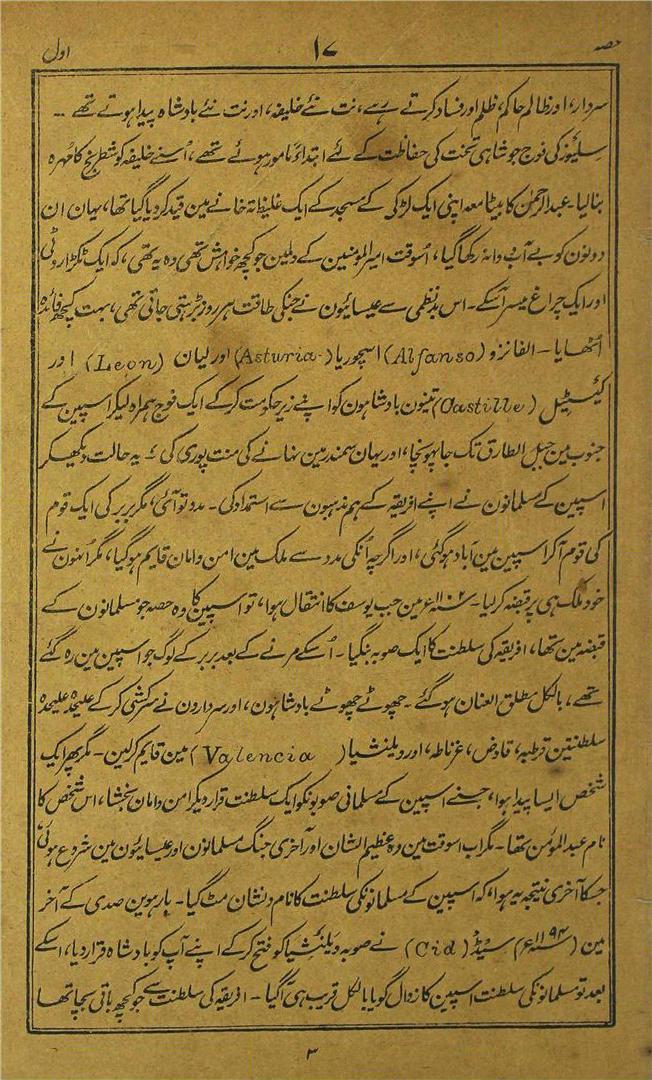 حصہ ۱۷ اول
سردار، اور ظالم حاکم، ظلم اور فساد کرتے رہے، نت نئے خلیفہ، اور نت نئے بادشاہ پیدا ہوتے تھے ۔۔
سلیوز کی فوج جو شاہی تخت کی حفاظت کے لئے ابتداءً مامور ہوئے تھے، اُسنے خلیفہ کو شطرنج کا مُہرہ
بنا لیا۔ عبدالرحمٰن کا بیٹا معہ اپنی ایک لڑکی کے مسجد کے ایک غلیظ تہ خانے مین قید کر دیا گیا تھا، یہان ان
دونون کو بے آب و دانہ رکھا گیا، اُسوقت امیر المؤمنین کے دلمین جو کچھ خواہش تھی وہ یہ تھی، کہ ایک ٹکڑا روٹی
اور ایک چراغ میسر آسکے۔ اس بدنظمی سے عیسائیون نے جنکی طاقت ہر روز بڑہتی جاتی تھی، بہت کچھ فائدہ
اُٹھایا ۔ الفانزو (Alfanso) اسچوریا (Asturia) اور لیان (Leon) اور
کیسٹیل (Castille) تینون بادشاہون کو اپنے زیر حکومت کر کے ایک فوج ہمراہ لیکر اسپین کے
جنوب مین جبل الطارق تک جا پہونچا، اور یہان سمندر مین نہانے کی منت پوری کی ۔ یہ حالت دیکھکر
اسپین کے مسلمانون نے اپنے افریقہ کے ہم مذہبون سے استمداد کی۔ مدد تو آئی، مگر بربر کی ایک قوم
کی قوم آ کر اسپین مین آباد ہو گئی، اور اگرچہ اُنکی مدد سے ملک مین امن و امان قایم ہو گیا، مگر اُنہون نے
خود ملک ہی پر قبضہ کر لیا۔ سنہ ۱۱۰۲ء مین جب یوسف کا انتقال ہوا، تو اسپین کا وہ حصہ جو مسلمانون کے
قبضہ مین تھا، افریقہ کی سلطنت کا ایک صوبہ بنگیا۔ اُسکے مرنے کے بعد بربر کے لوگ جو اسپین مین رہ گئے
تھے، بالکل مطلق العنان ہو گئے۔ چھوٹے چھوٹے بادشاہون، اور سردارون نے سرکشی کر کے علیٰحدہ علیٰحدہ
سلطنتین قرطبہ، قادض، غرناطہ، اور ویلنشیا (Valencia) مین قایم کر لین۔ مگر پھر ایک
شخص ایسا پیدا ہوا، جسنے اسپین کے مسلمانی صوبونکو ایک سلطنت قرار دیکر امن و امان بخشا، اس شخص کا
نام عبدالمؤمن تھا۔ مگر اب اسوقت مین وہ عظیم الشان اور آخری جنگ مسلمانون اور عیسائیون مین شروع ہوئی
جسکا آخری نتیجہ یہ ہوا، کہ اسپین کے مسلمانونکی سلطنت کا نام و نشان مٹ گیا۔ بارہوین صدی کے آخر
مین (سنہ ۱۱۹۴ء) سیڈ (Cid) نے صوبہ ویلنشیا کو فتح کر کے اپنے آپ کو بادشاہ قرار دیا، اسکے
بعد تو مسلمانونکی سلطنت اسپین کا زوال گویا بالکل قریب ہی آ گیا ۔ افریقہ کی سلطنت سے جو کچھ باقی بچا تھا
۳